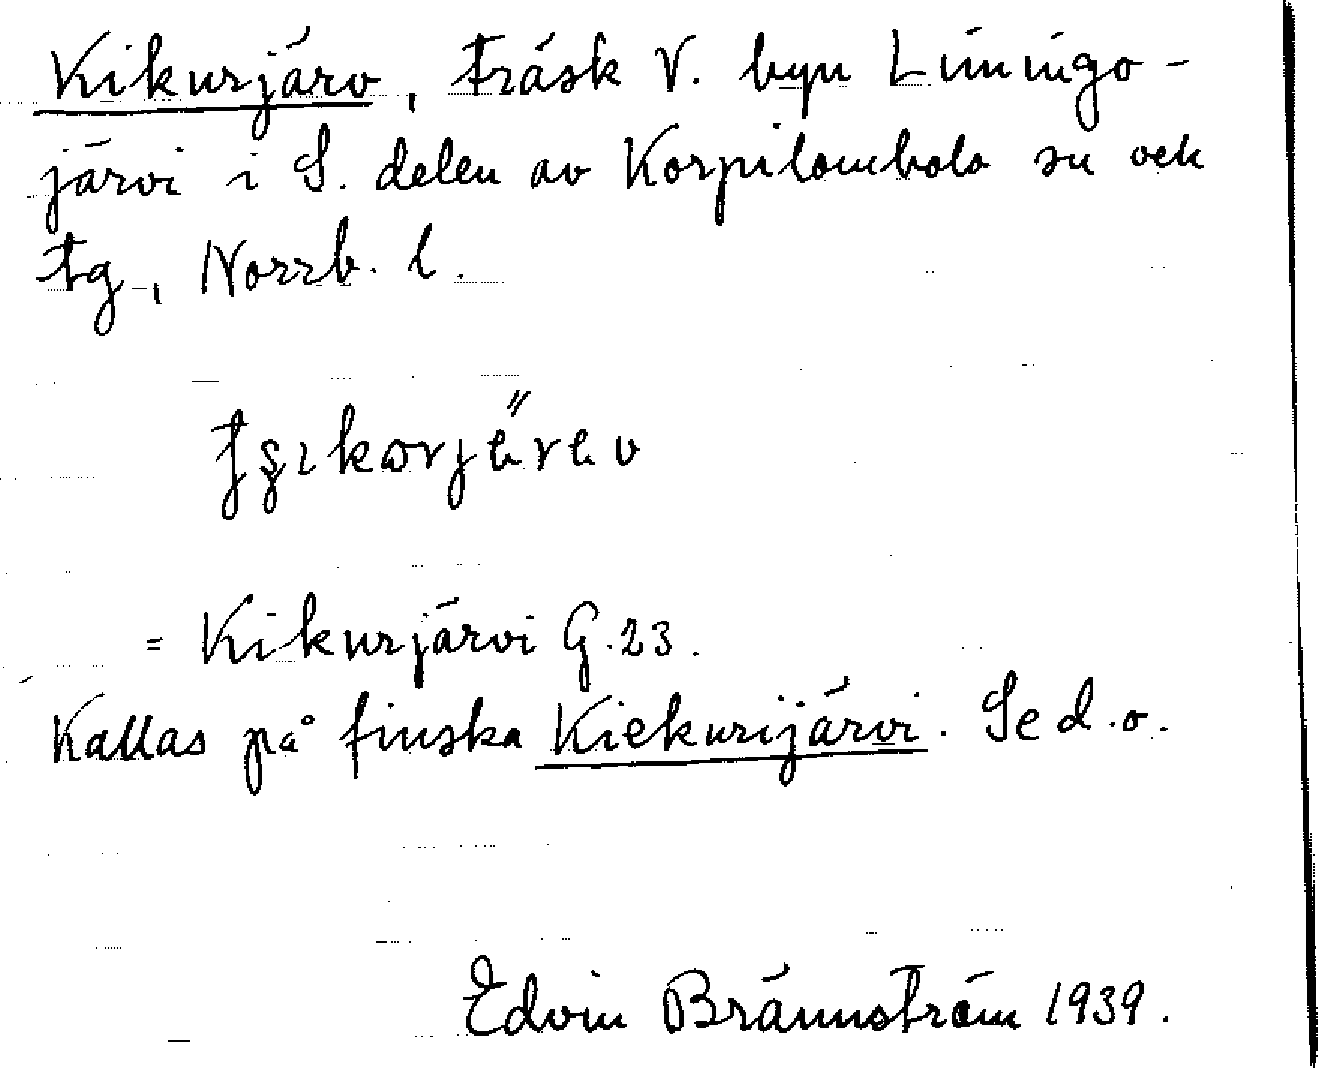 Kikurjärv, träsk V. byn Liiningo-
järvi i S. delen av Korpilombolo sn ock
tg, Norrb. l.
= Kikurjärvi G.23.
Kallas på finska Kiekurijärvi. Se d.o.
Edvin Brännström 1939.